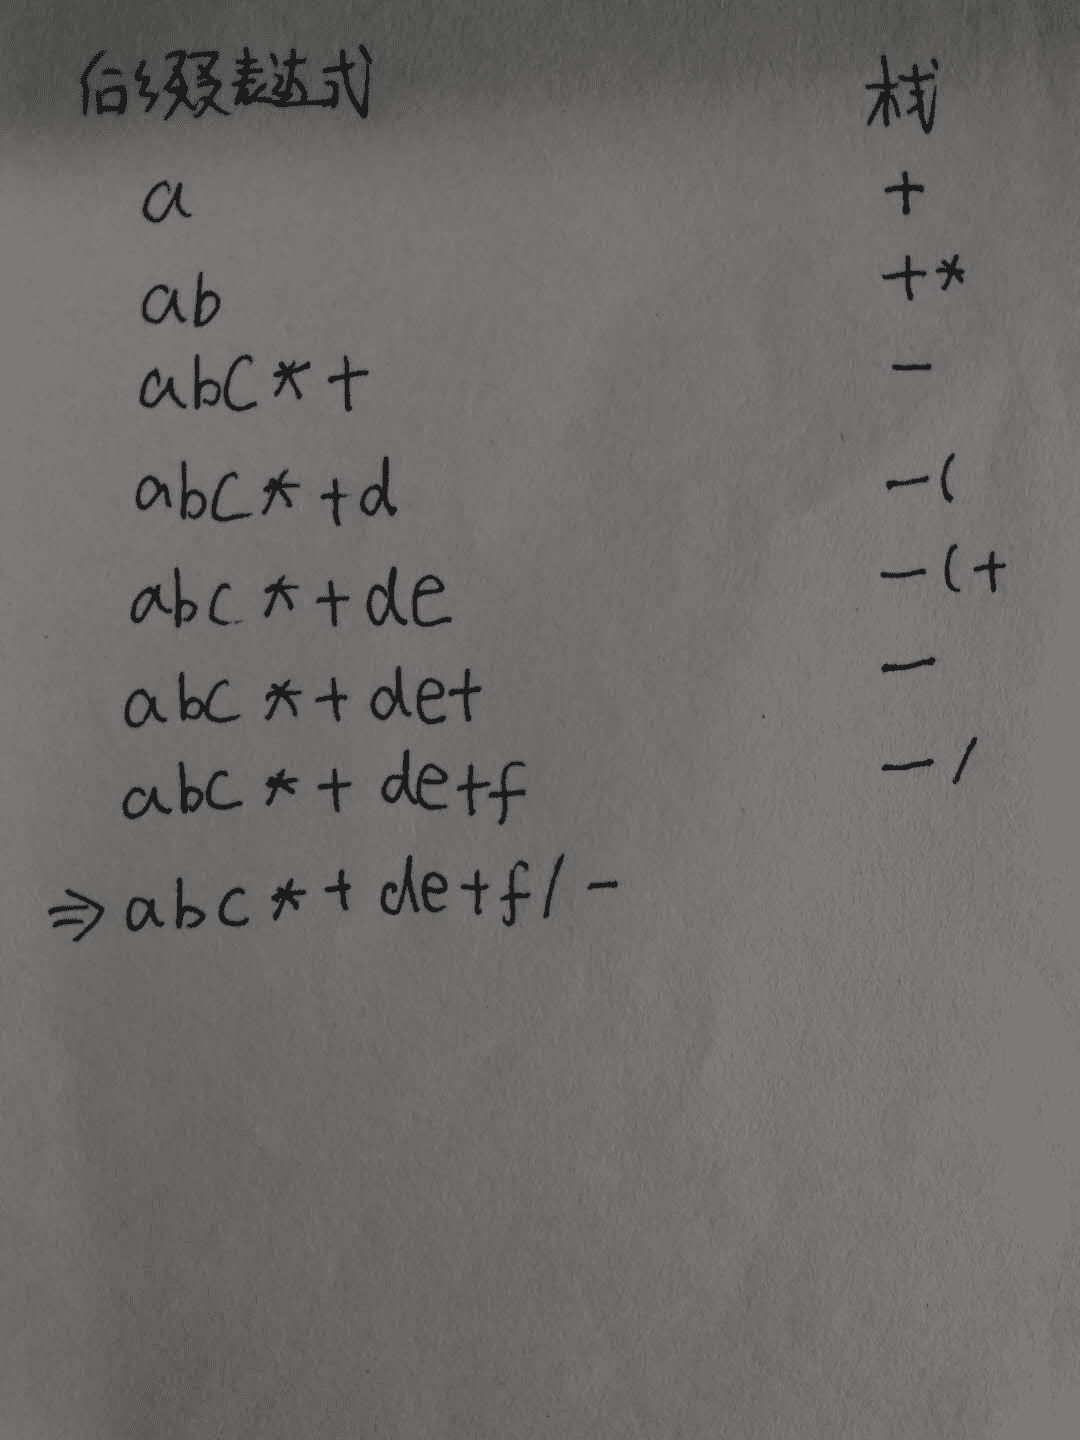 后缀表达式 栈
a +
ab +*
abc*+ -
abc*+d -(
abc*+de -(+
abc*+de+ -
abc*+de+f -/
⇒abc*+de+f/-